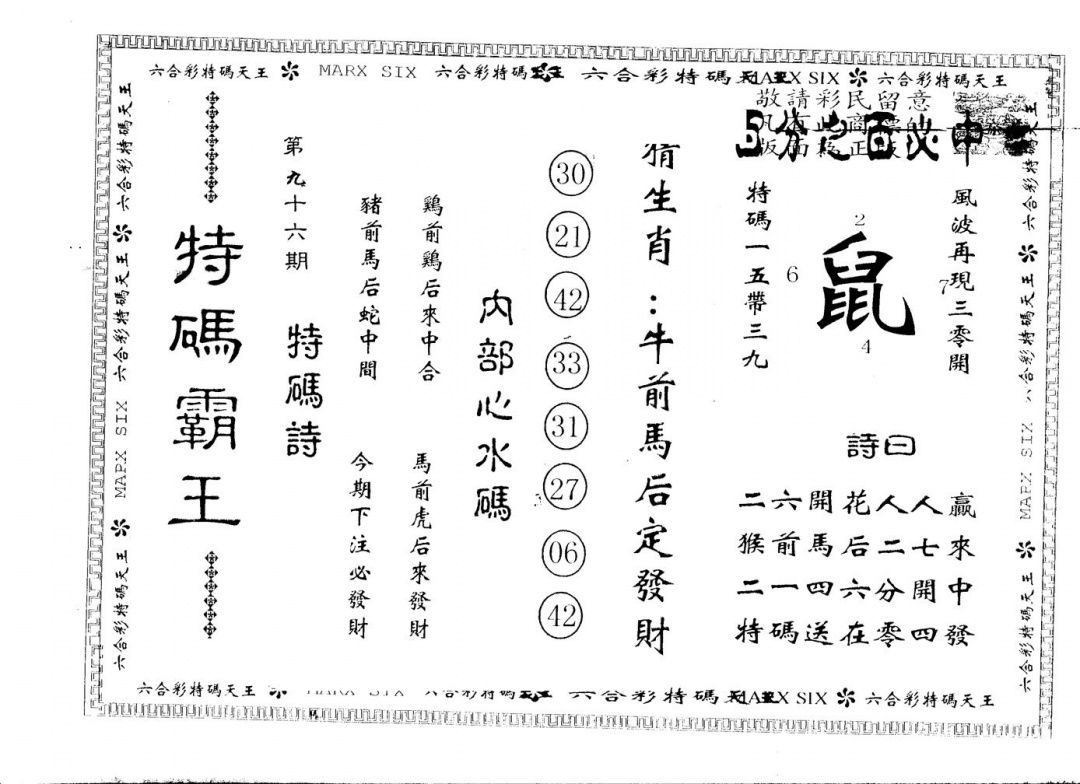 六合彩特碼天王 MARX SIX 六合彩特碼天王 六合彩特碼天王 MARX SIX 六合彩特碼天王
敬請彩民留意
分之百必中
風波再現三零開
2
6
鼠
7
4
特碼一五帶三九
詩曰
二六開花人人贏
猴前馬后二七來
二一四六分開中
特碼送在零四發
猜生肖:牛前馬后定發財
30
21
42
33
31
27
06
42
內部心水碼
鷄前鷄后來中合
馬前虎后來發財
豬前馬后蛇中間
今期下注必發財
第九十六期
特碼詩
特碼霸王
六合彩特碼天王
六合彩特碼天王 MARX SIX 六合彩特碼天王
六合彩特碼天王
六合彩特碼天王 MARX SIX
六合彩特碼天王
六合彩特碼天王 六合彩特碼 MARX SIX 六合彩特碼天王